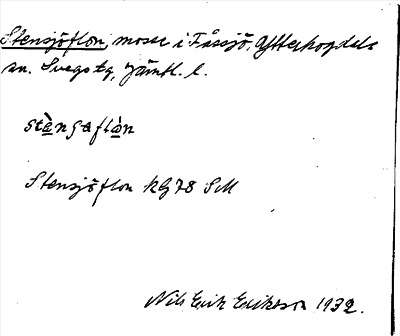 Stensjöflon, mosse i Fåssjö, Ytterhogdals
sn. Svegs tg, Jämtl. l.
stæ̀nsɑflòn
Stensjöflon kG 78 SM
Nils Erik Eriksson 1932.